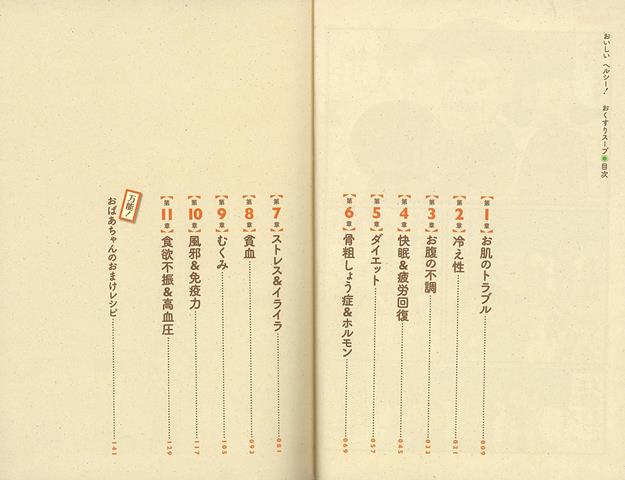 おいしい ヘルシー! おくすりスープ●目次
【第1章】お肌のトラブル……009
【第2章】冷え性……021
【第3章】お腹の不調……033
【第4章】快眠&疲労回復……045
【第5章】ダイエット……057
【第6章】骨粗しょう症&ホルモン……069
【第7章】ストレス&イライラ……081
【第8章】貧血……093
【第9章】むくみ……105
【第10章】風邪&免疫力……117
【第11章】食欲不振&高血圧……129
万能!
おばあちゃんのおまけレシピ……141